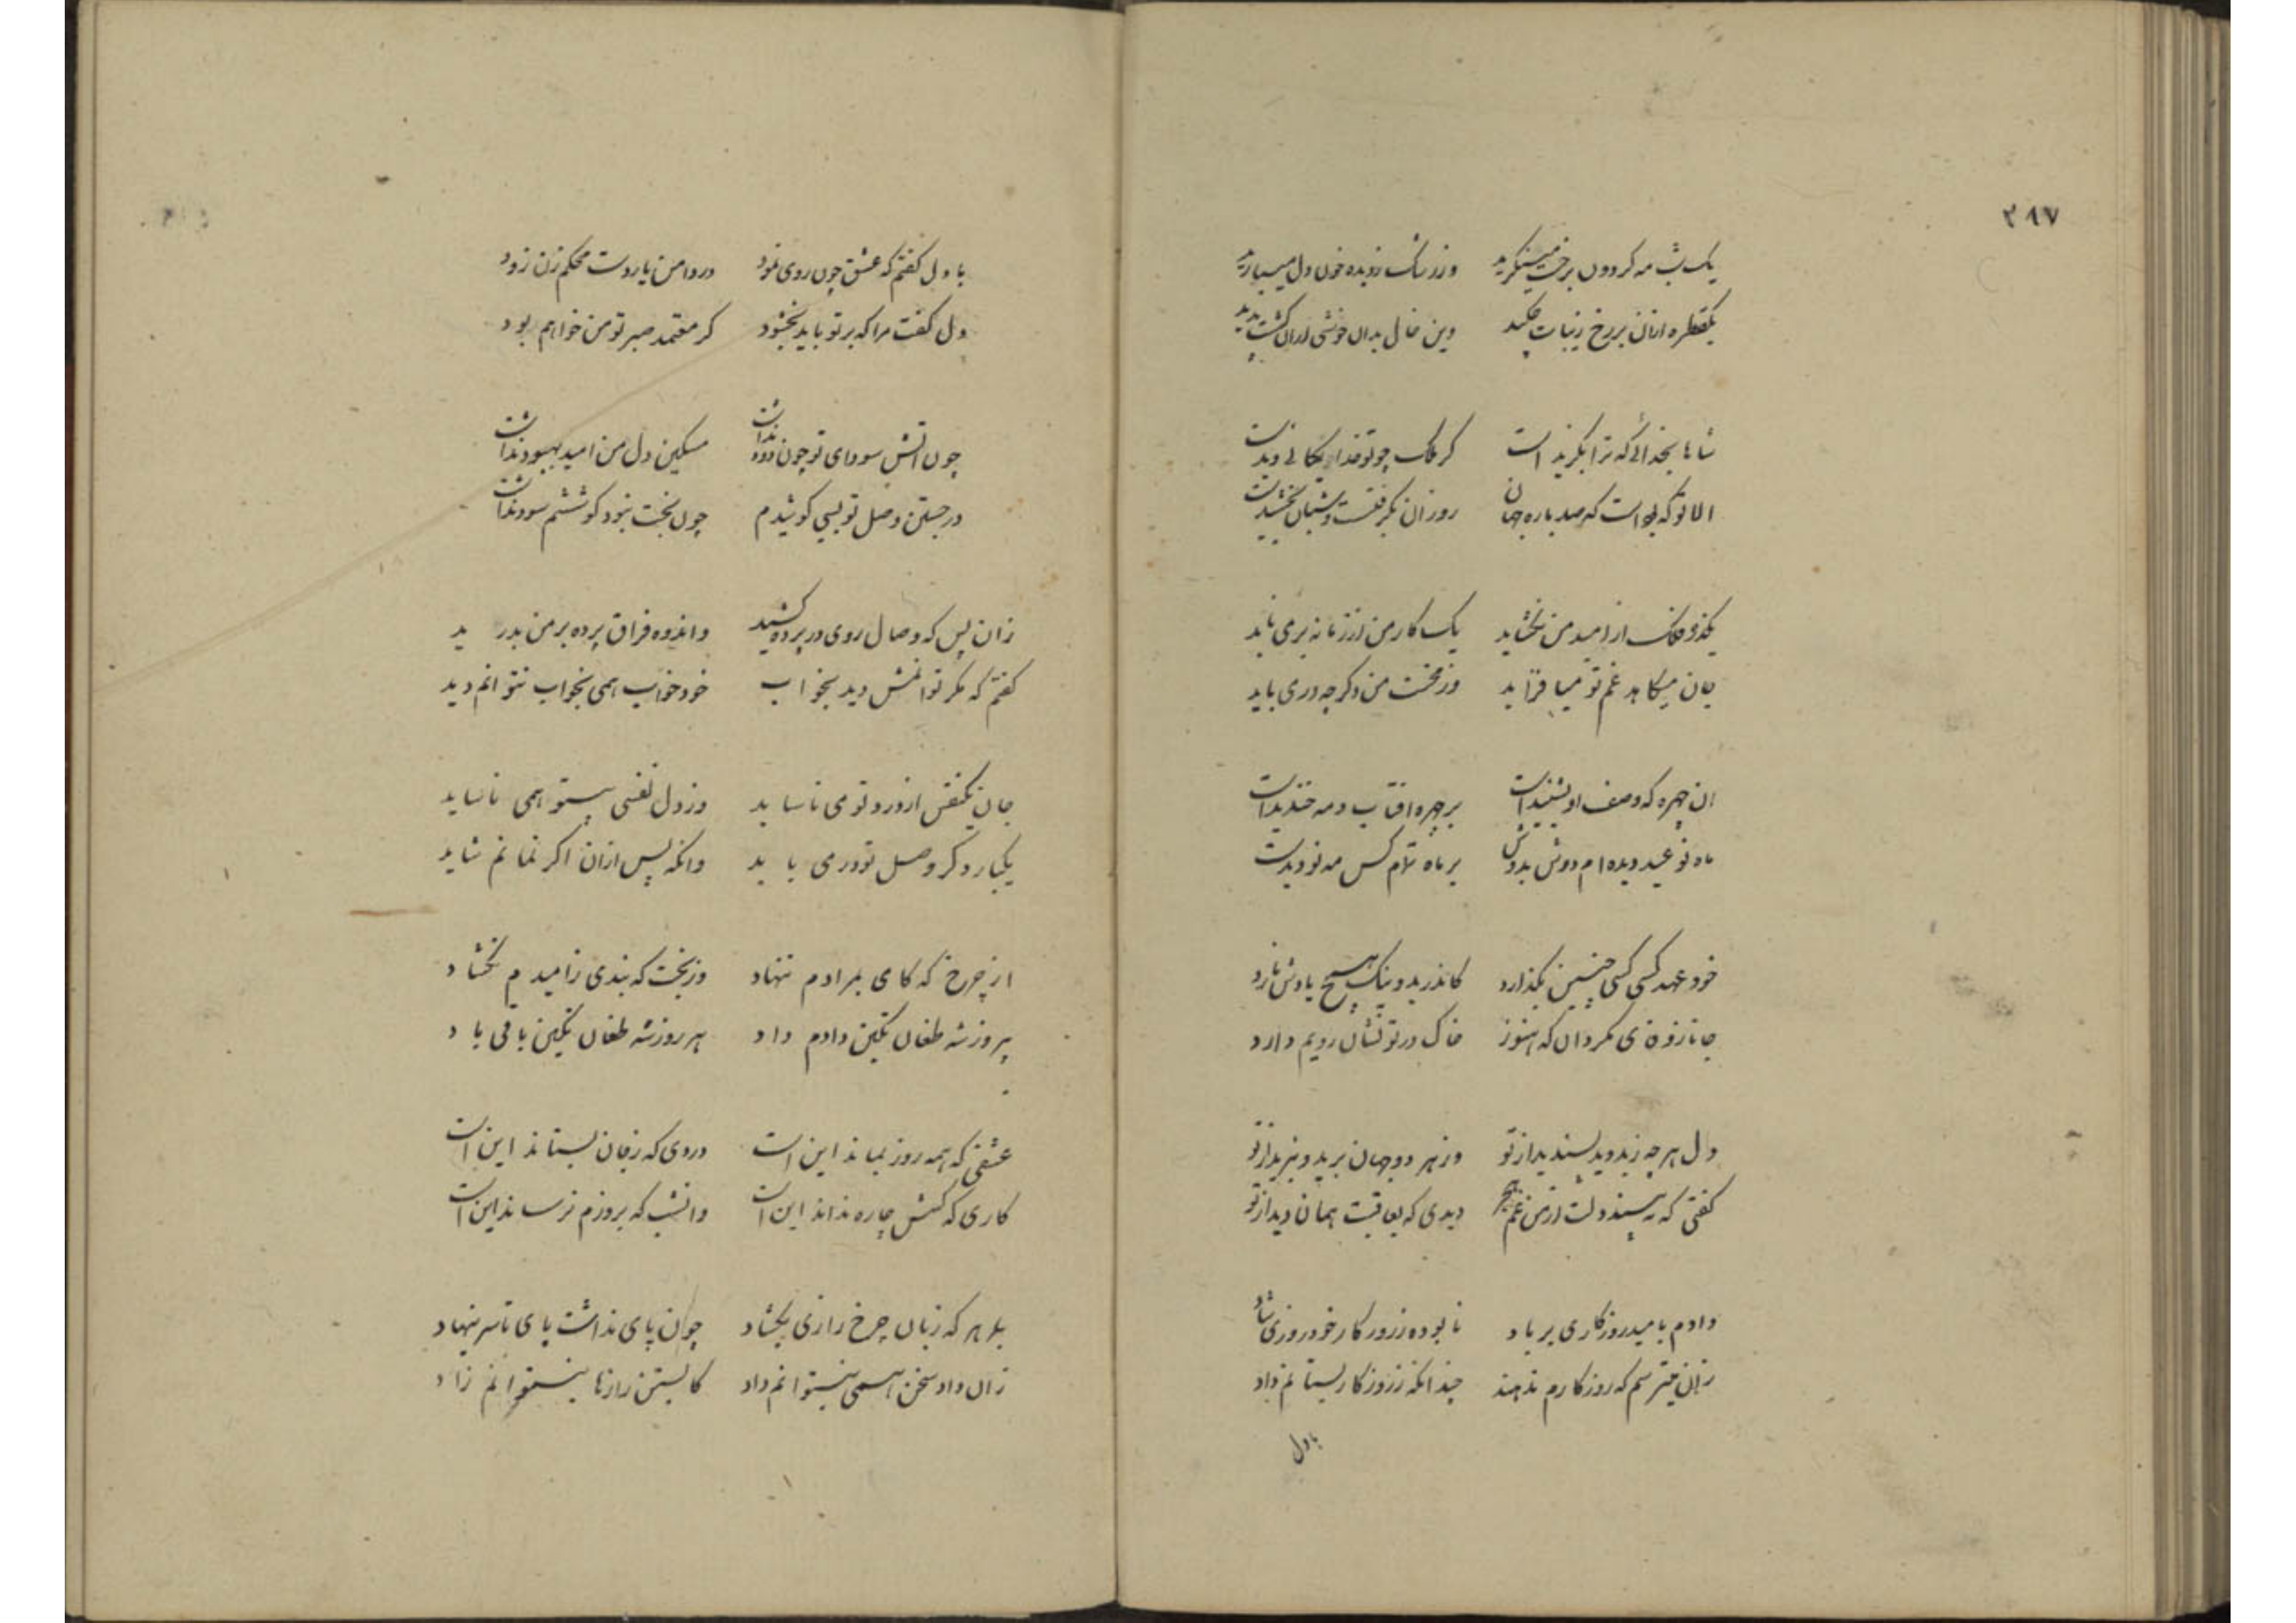 ۳۹۷
یک شب مه کردون برخت مینکرید وز رشک زدیده خون دل میبارید
یکقطره ازان بر رخ زیبات چکید وین خال بدان خوشی ازان کشت پدید
شاها بخدائی که ترا بکزیدست کر ملک چو تو خدایکانی دیدست
الا تو که بوداست که صد باره جهان روزان بکرفتست و شبان بخشیدست
یکدم فلک از امید من نکشاید یک کار من از زمانه برمی ناید
جان میکاهد غم تو میافزاید وز محنت من دکر چه درمی باید
ان چهره که وصف او بشنیدست بر چهره افتاب و مه خندیدست
ماه نو عید دیده ام دوش بدوش بر ماه تمام کس مه نو دیدست
خود عهد کسی کسی چنین بکذارد کاندر بد و نیک هیچ یادش نارد
جانا ز وفا روی مکردان که هنوز خاک در تو نشان رویم دارد
دل هر چه ز بد دید پسندید از تو وز هر دو جهان برید و نبرید از تو
کفتی که نه بیند دلت از من غم هجر دیدی که بعاقبت همان دید از تو
دادم بامید روزکاری بر باد نابوده ز روزکار خود روزی شاد
زان میترسم که روزکارم ندهد چندانکه ز روزکار بستانم داد
بادل
با دل کفتم که عشق چون روی نمود در دامن یار دست محکم زن زود
دل کفت مرا که بر تو باید بخشود کر معتمد صبر تو من خواهم بود
چون اتش سودای تو جز دود نداشت مسکین دل من امید بهبود نداشت
در جستن وصل تو بسی کوشیدم چون بخت نبود کوششم سود نداشت
زان پس که وصال روی در پرده کشید واندوه فراق پرده بر من بدرید
کفتم که مکر توانمش دید بخواب خود خواب همی بخواب نتوانم دید
جان یکنفس از درد تو می ناساید وز دل نفسی بیتو همی ناساید
یکبار دکر وصل تو درمی باید وانکه پس ازان اکر نمانم شاید
از چرخ که کامی بمرادم ننهاد وز بخت که بندی ز امیدم نکشاد
پیروز شه طغان تکین دادم داد پیروز شه طغان تکین باقی باد
عشقی که همه روز بماند این است دردی که ز جان بستاند این است
کاری که کسش چاره نداند این است وانشب که بروزم نرساند این است
با هر که زبان چرخ رازی بکشاد چون پای نداشت پای تا سر ننهاد
زان داد سخن همی نیتوانم داد کابستن رازها نمیتوانم زاد